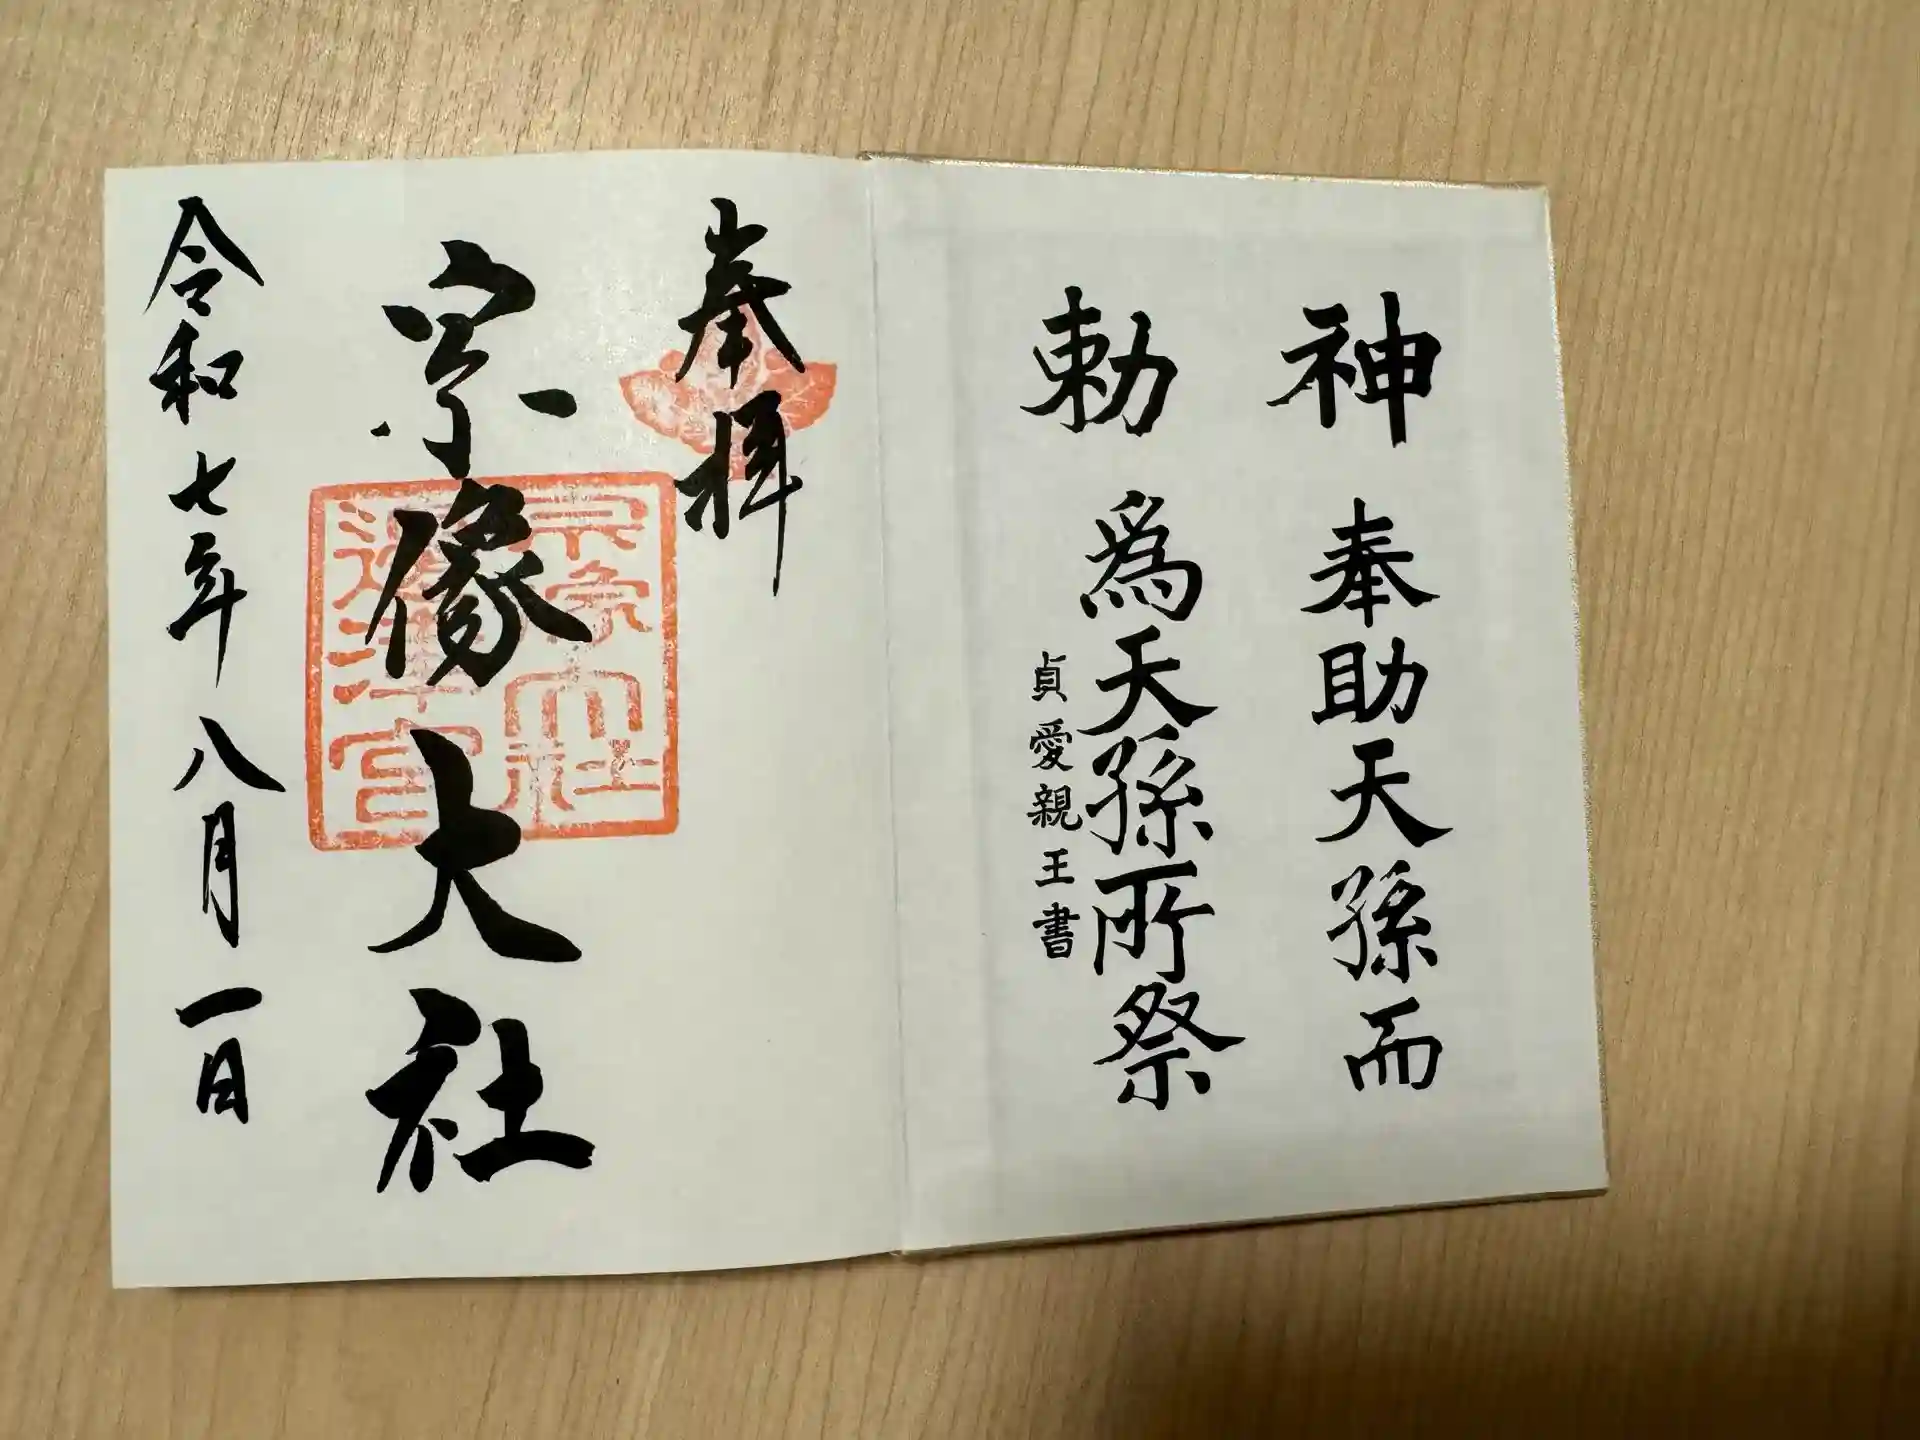 神勅
奉助天孫而
爲天孫所祭
貞愛親王書
奉拝
宗像大社
宗像大社
邊津宮
令和七年八月一日